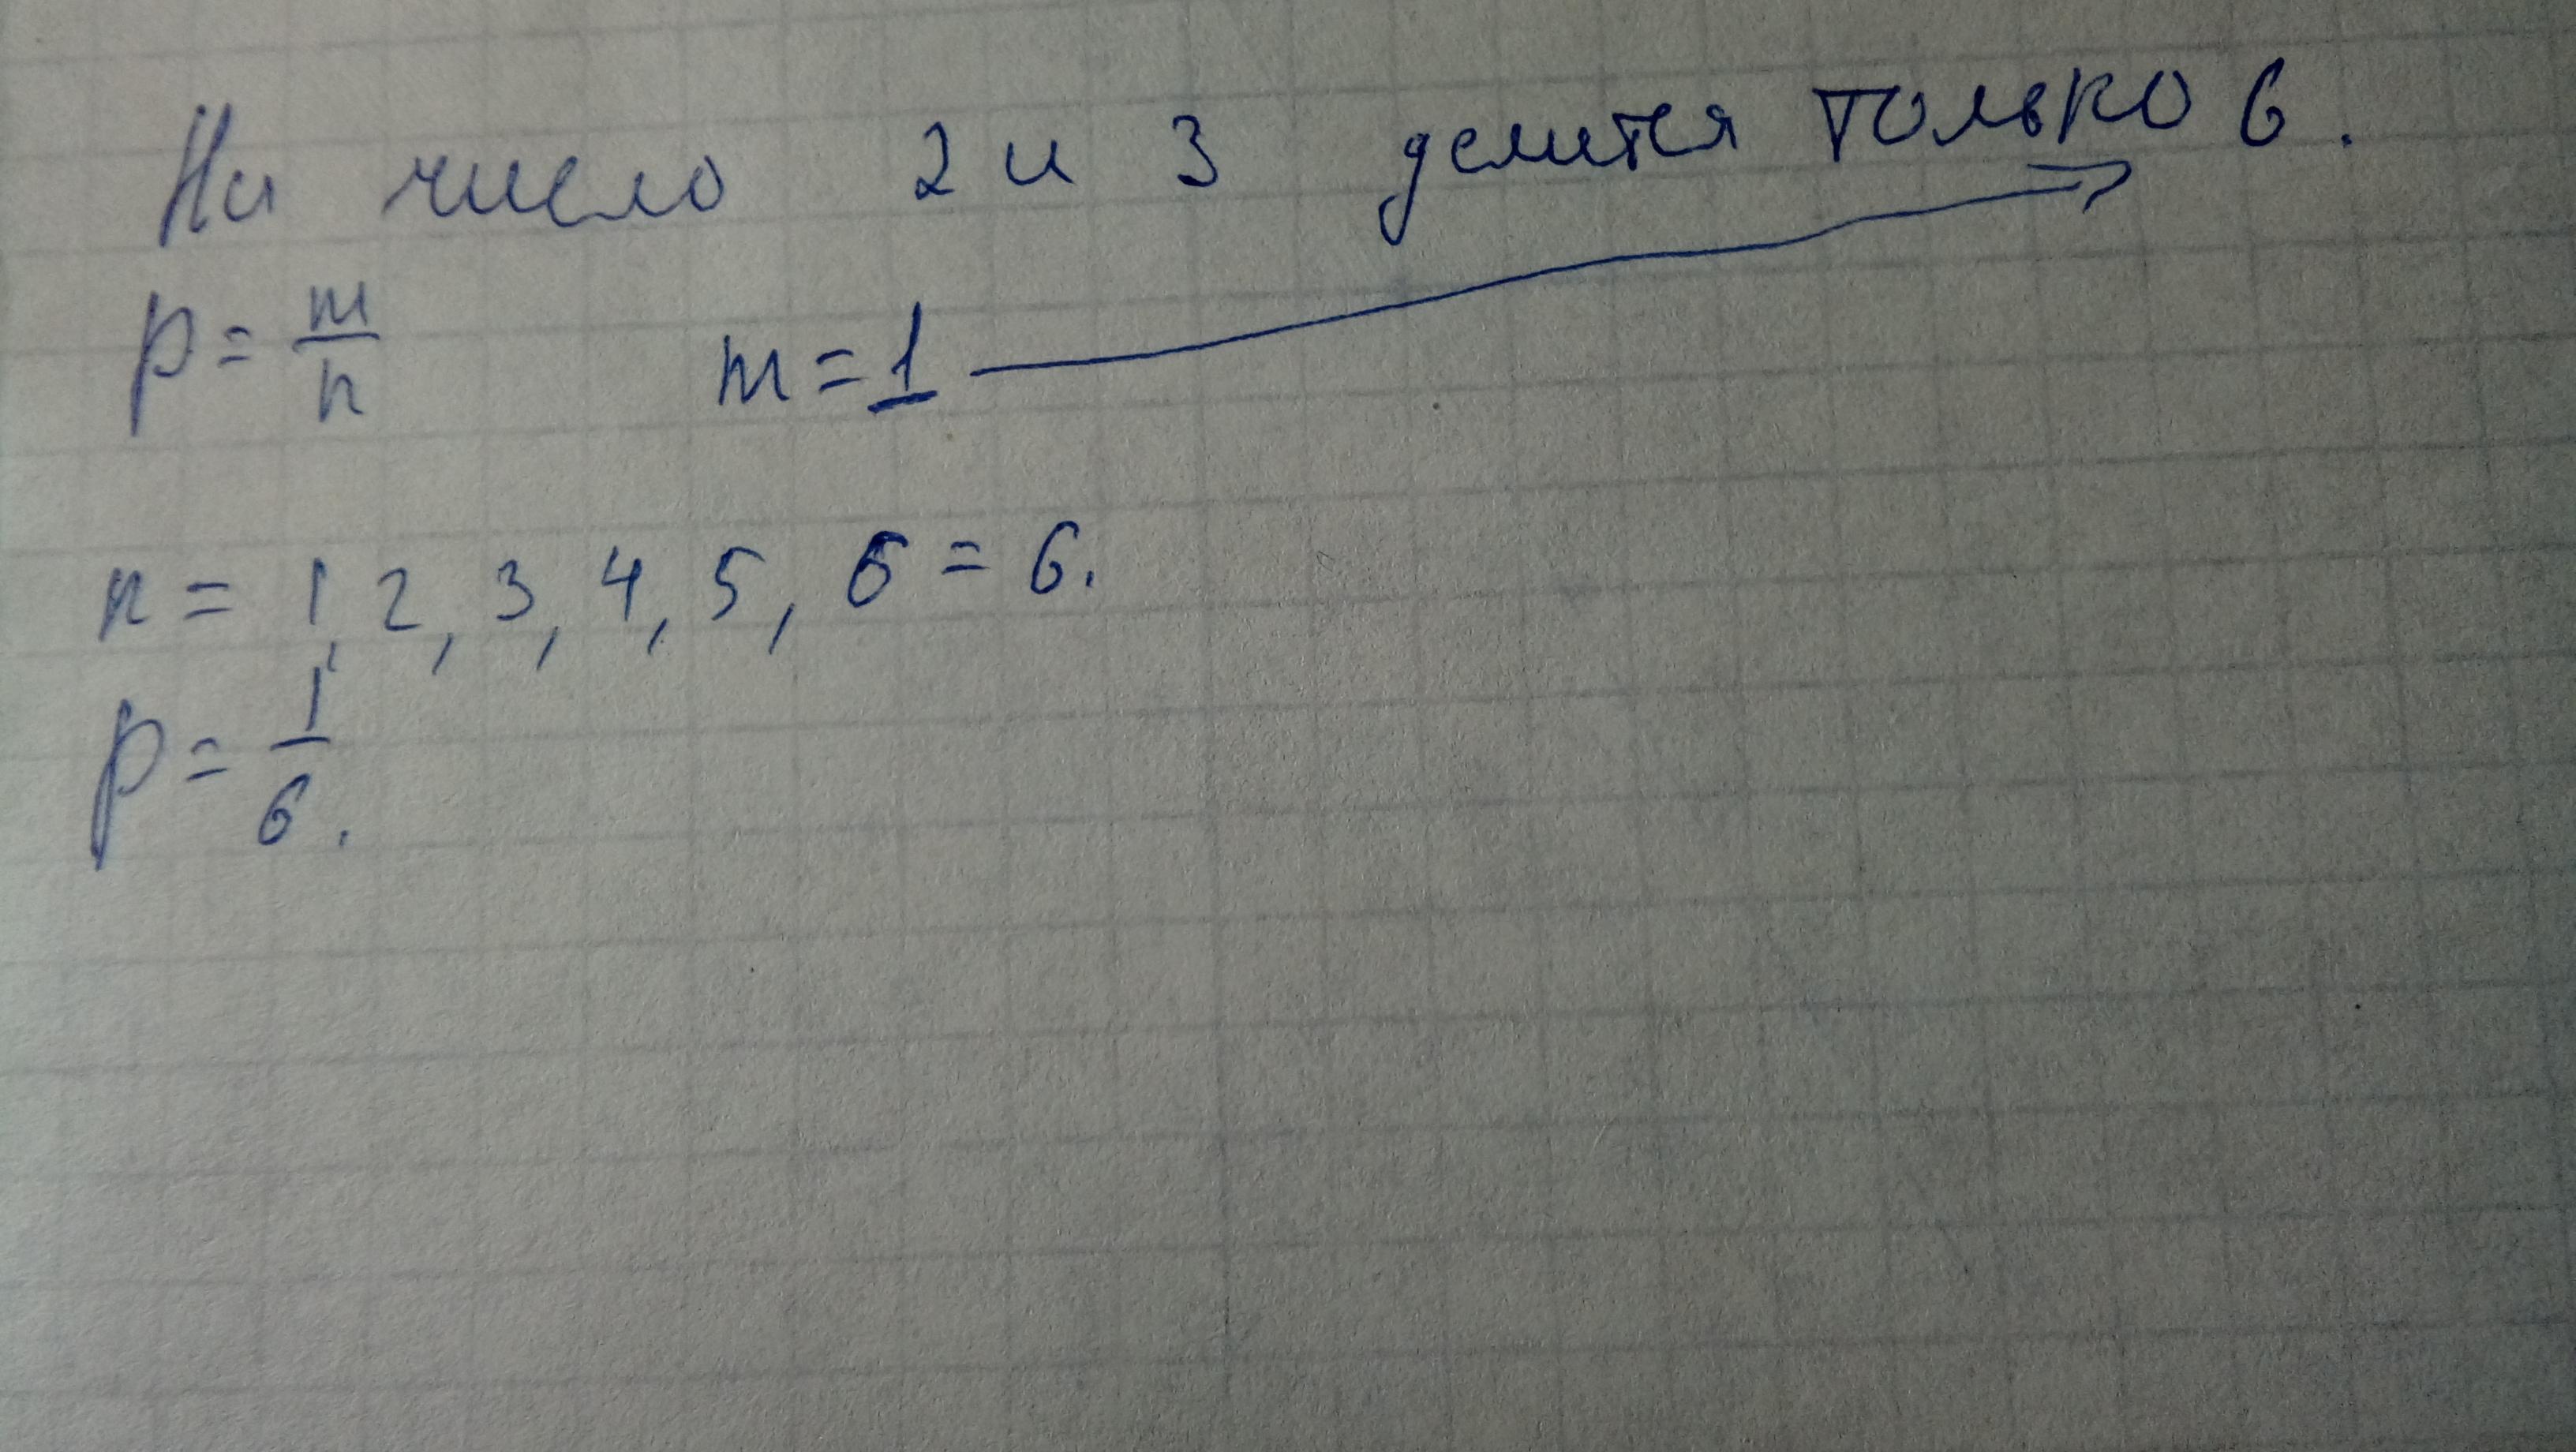 На число 2 и 3 делится только 6.
p = m/n m = 1
n = 1, 2, 3, 4, 5, 6 = 6.
p = 1/6.